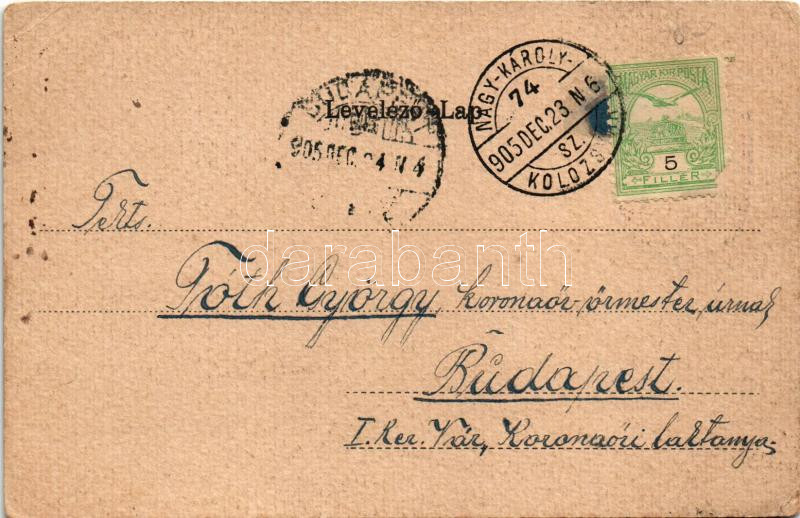 NAGY-KÁROLY-
74
905 DEC. 23 N 6
SZ.
KOLOZS
MAGYAR KIR. POSTA
5
FILLÉR
BUDAPEST
905 DEC. 24 N 4
Levelező-Lap
Tekts.
Tóth György, koronaőr-őrmester úrnak
Budapest.
I. Ker. Vár, Koronaőri laktanya.
darabanth